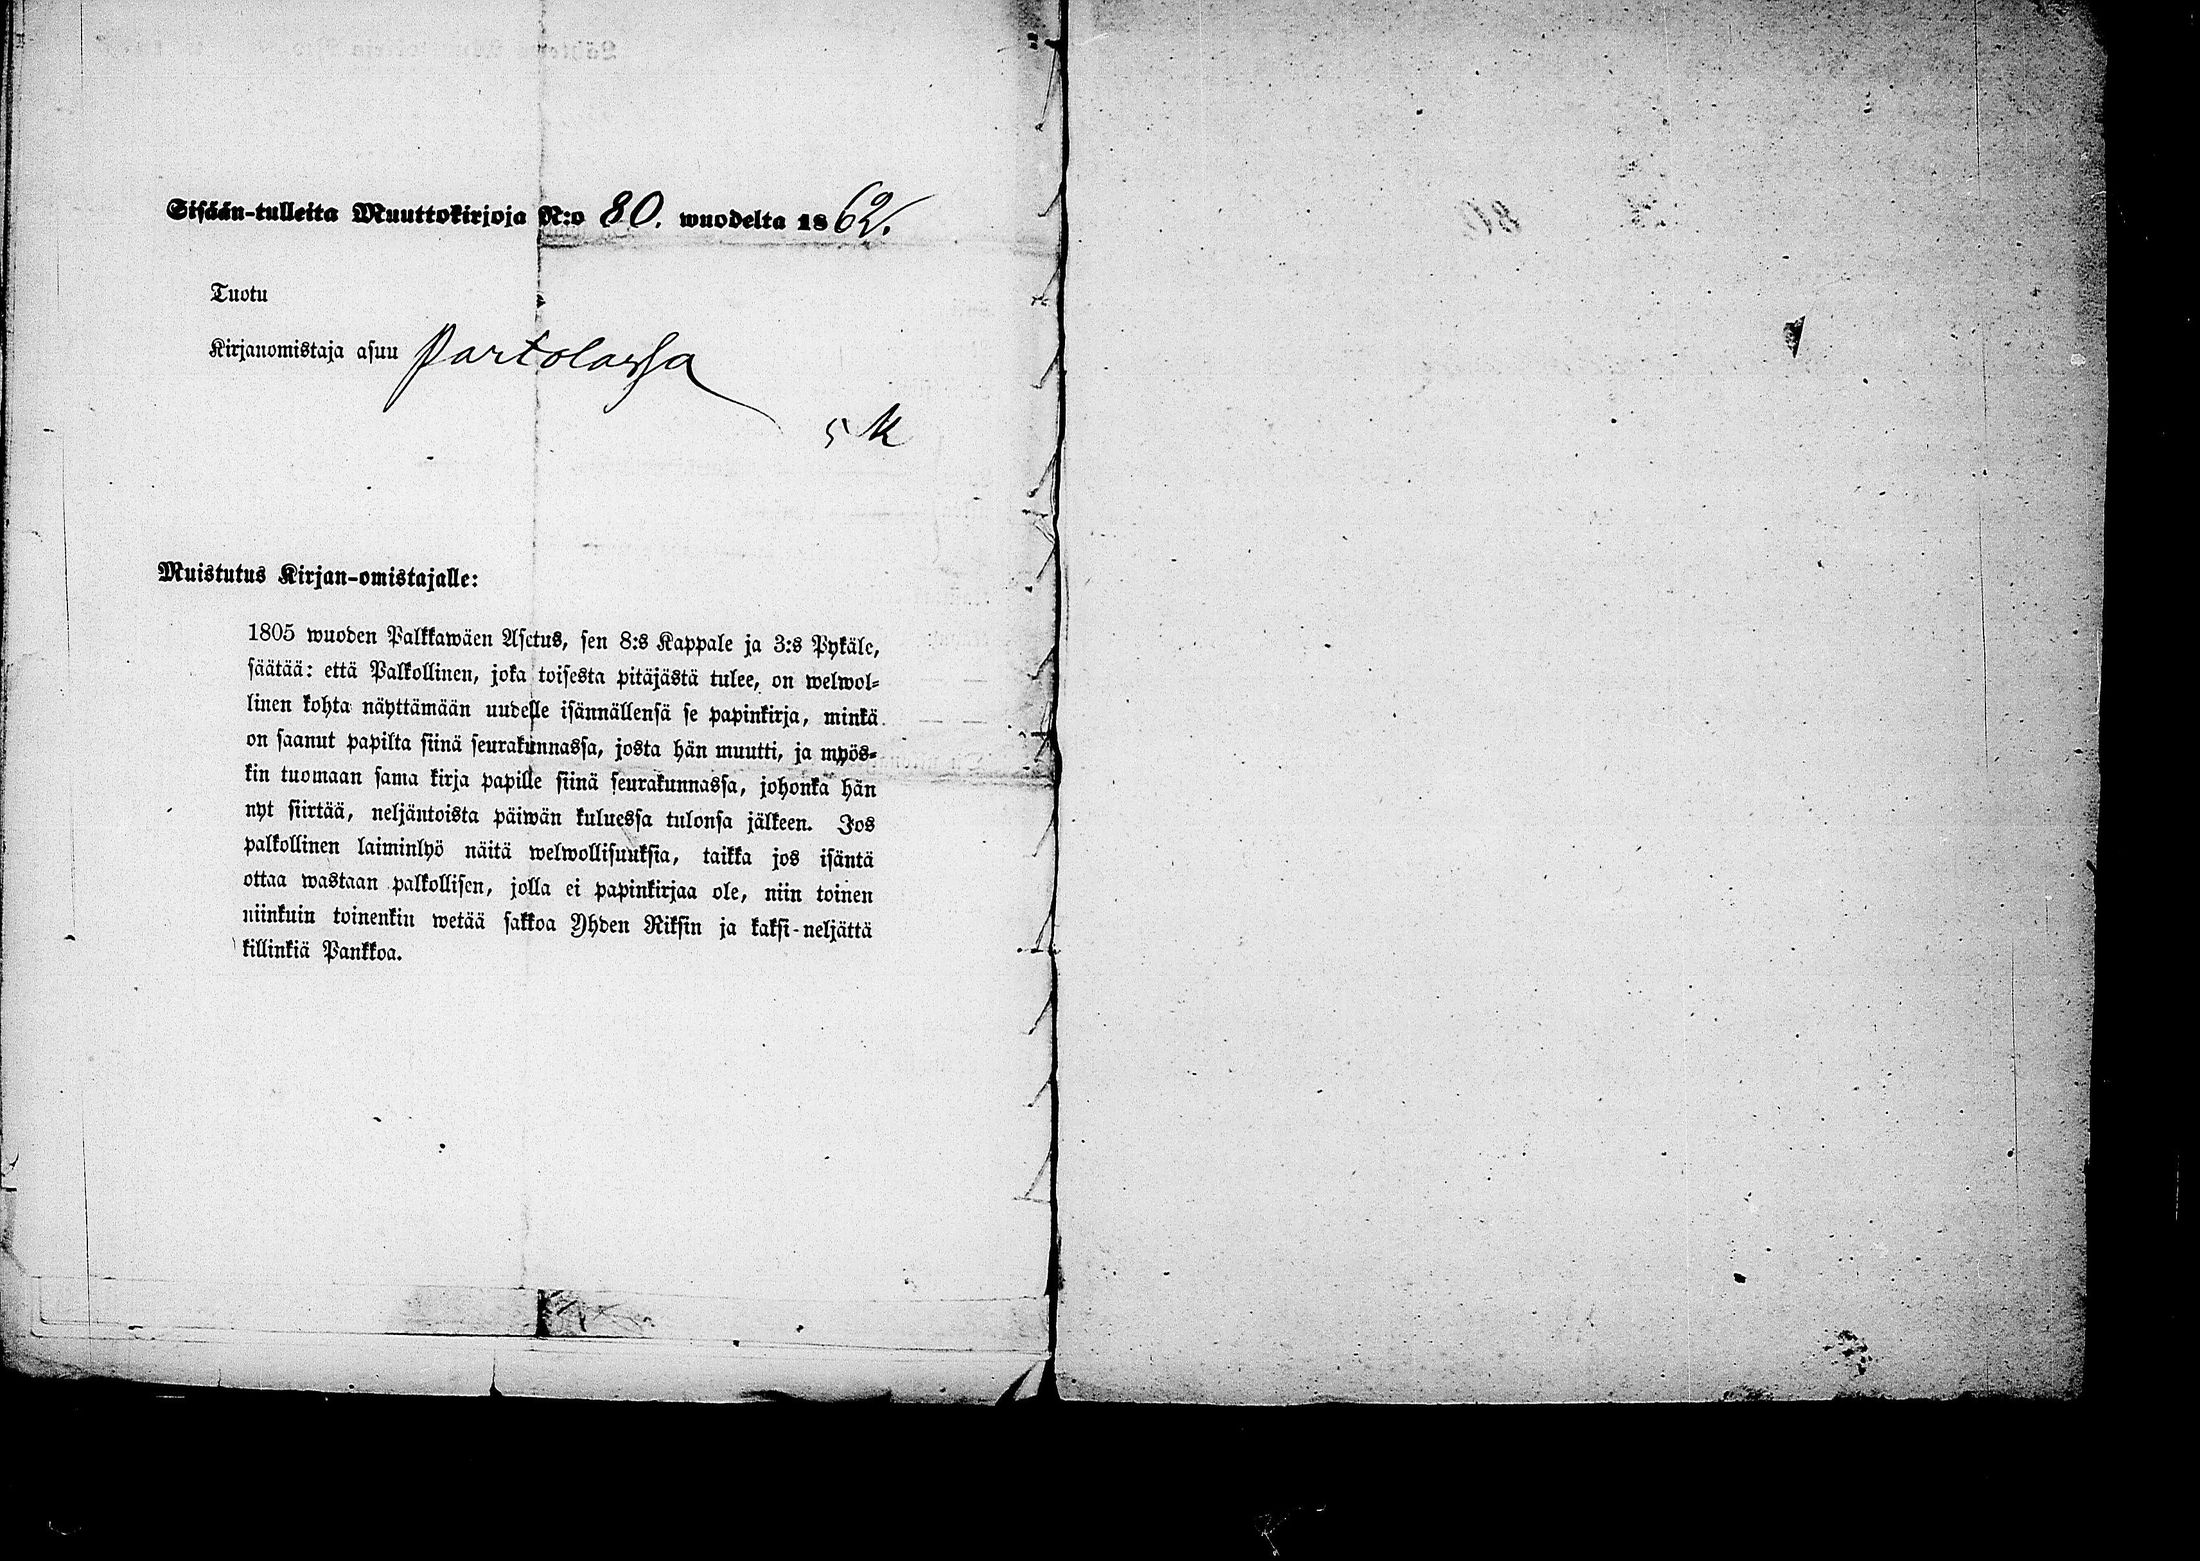 Sisään-tulleita Muuttokirjoja N:o 80. wuodelta 1862.
Tuotu
Kirjanomistaja asuu Partolassa
5 K
Muistutus Kirjan-omistajalle:
1805 wuoden Palkkawäen Asetus, sen 8:s Kappale ja 3:s Pykäle,
säätää: että Palkollinen, joka toisesta pitäjästä tulee, on welwol-
linen kohta näyttämään uudelle isännällensä se papinkirja, minkä
on saanut papilta siinä seurakunnassa, josta hän muutti, ja myös-
kin tuomaan sama kirja papille siinä seurakunnassa, johonka hän
nyt siirtää, neljäntoista päiwän kuluessa tulonsa jälkeen. Jos
palkollinen laiminlyö näitä welwollisuuksia, taikka jos isäntä
ottaa wastaan palkollisen, jolla ei papinkirjaa ole, niin toinen
niinkuin toinenkin wetää sakkoa Yhden Riksin ja kaksi-neljättä
killinkiä Pankkoa.